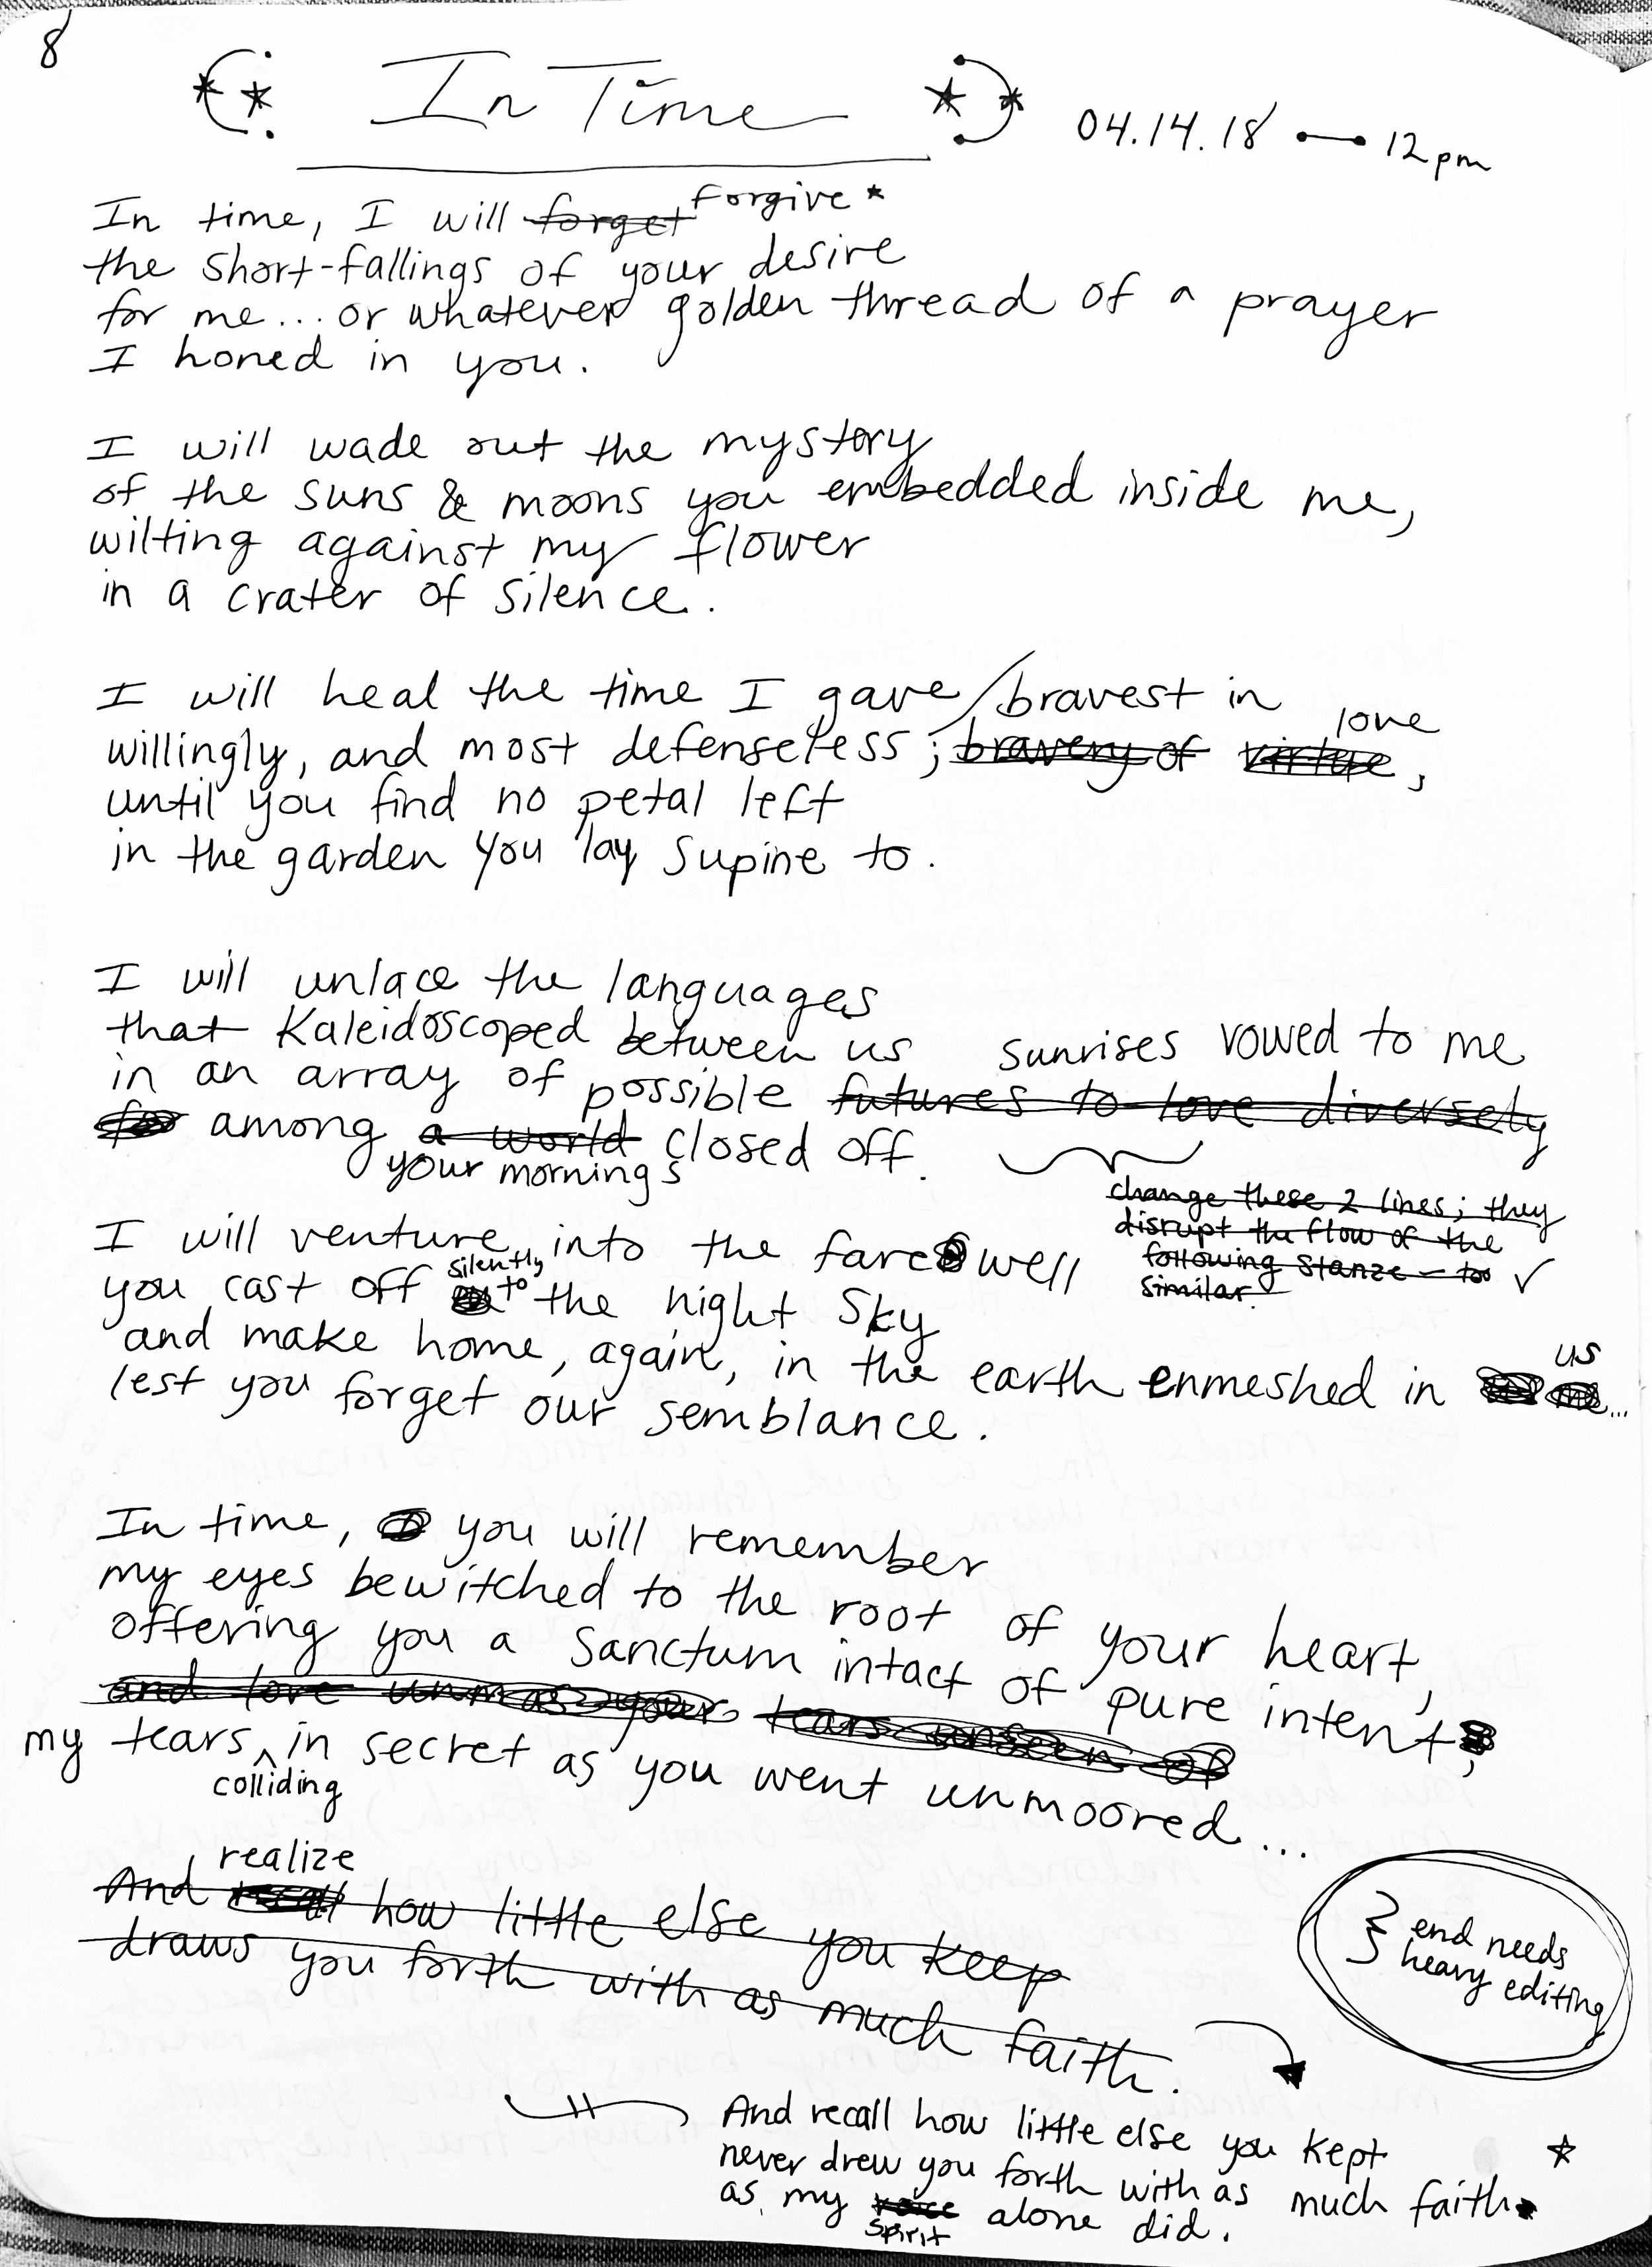 8
In Time
04.14.18 12pm
In time, I will forget Forgive *
the short-fallings of your desire
for me... or whatever golden thread of a prayer
I honed in you.
I will wade out the mystery
of the suns & moons you embedded inside me,
wilting against my flower
in a crater of silence.
I will heal the time I gave / bravest in love
willingly, and most defenseless; bravery of virtue,
until you find no petal left
in the garden you lay supine to.
I will unlace the languages
that kaleidoscoped between us
sunrises vowed to me
in an array of possible futures to love diversely
for among a world closed off.
your mornings
change these 2 lines; they
disrupt the flow of the
following stanze - too
similar. ✓
I will venture into the farewell
silently
you cast off to the night sky
and make home, again, in the earth enmeshed in me... us
lest you forget our semblance.
In time, I you will remember
my eyes bewitched to the root of your heart,
offering you a sanctum intact of pure intent;
and love unmas your tears unseen of
my tears ^ in secret as you went unmoored...
colliding
realize
And recall how little else you keep
draws you forth with as much faith.
} end needs
heavy editing
And recall how little else you kept
never drew you forth with as much faith
as my voice alone did.
spirit